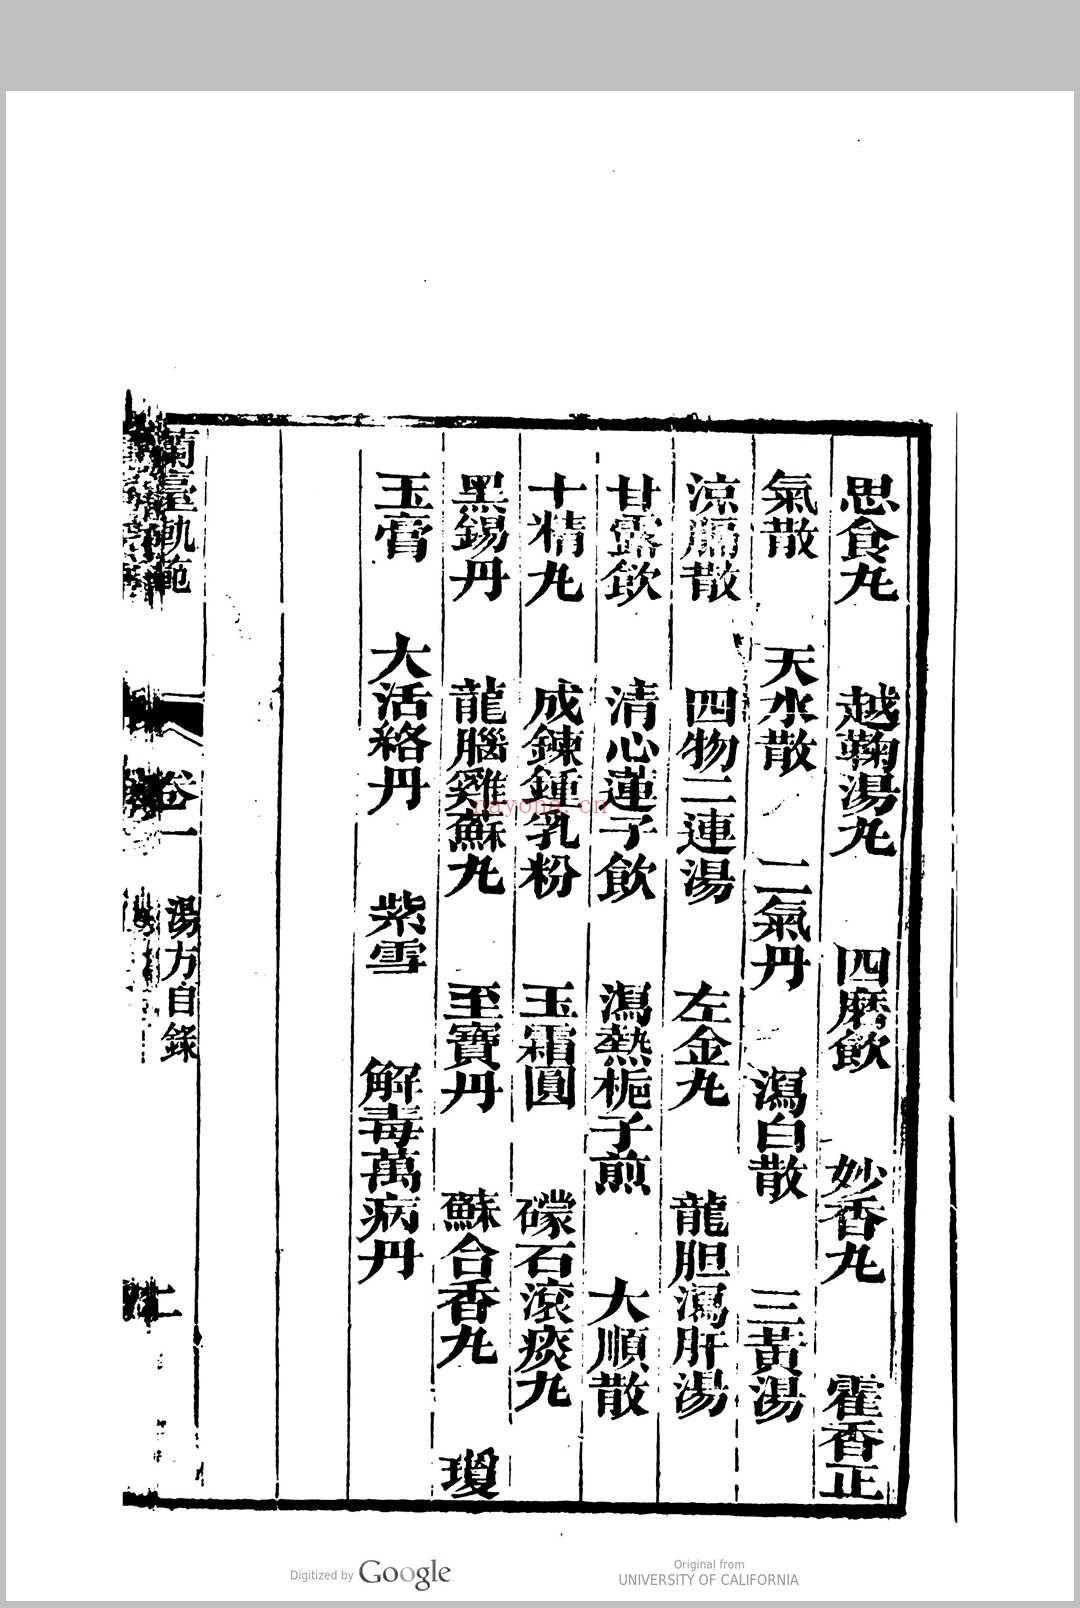 思食丸　越鞠湯丸　四磨飲　妙香丸　霍香正
氣散　天水散　二氣丹　瀉白散　三黃湯
涼膈散　四物二連湯　左金丸　龍胆瀉肝湯
甘露飲　清心蓮子飲　瀉熱梔子煎　大順散
十精丸　成鍊鍾乳粉　玉霜圓　礞石滾痰丸
黑錫丹　龍腦雞蘇丸　至寶丹　蘇合香丸　瓊
玉膏　大活絡丹　紫雪　解毒萬病丹
蘭臺軌範　卷一　湯方目錄　二
nayona.cn
Digitized by Google
Original from
UNIVERSITY OF CALIFORNIA